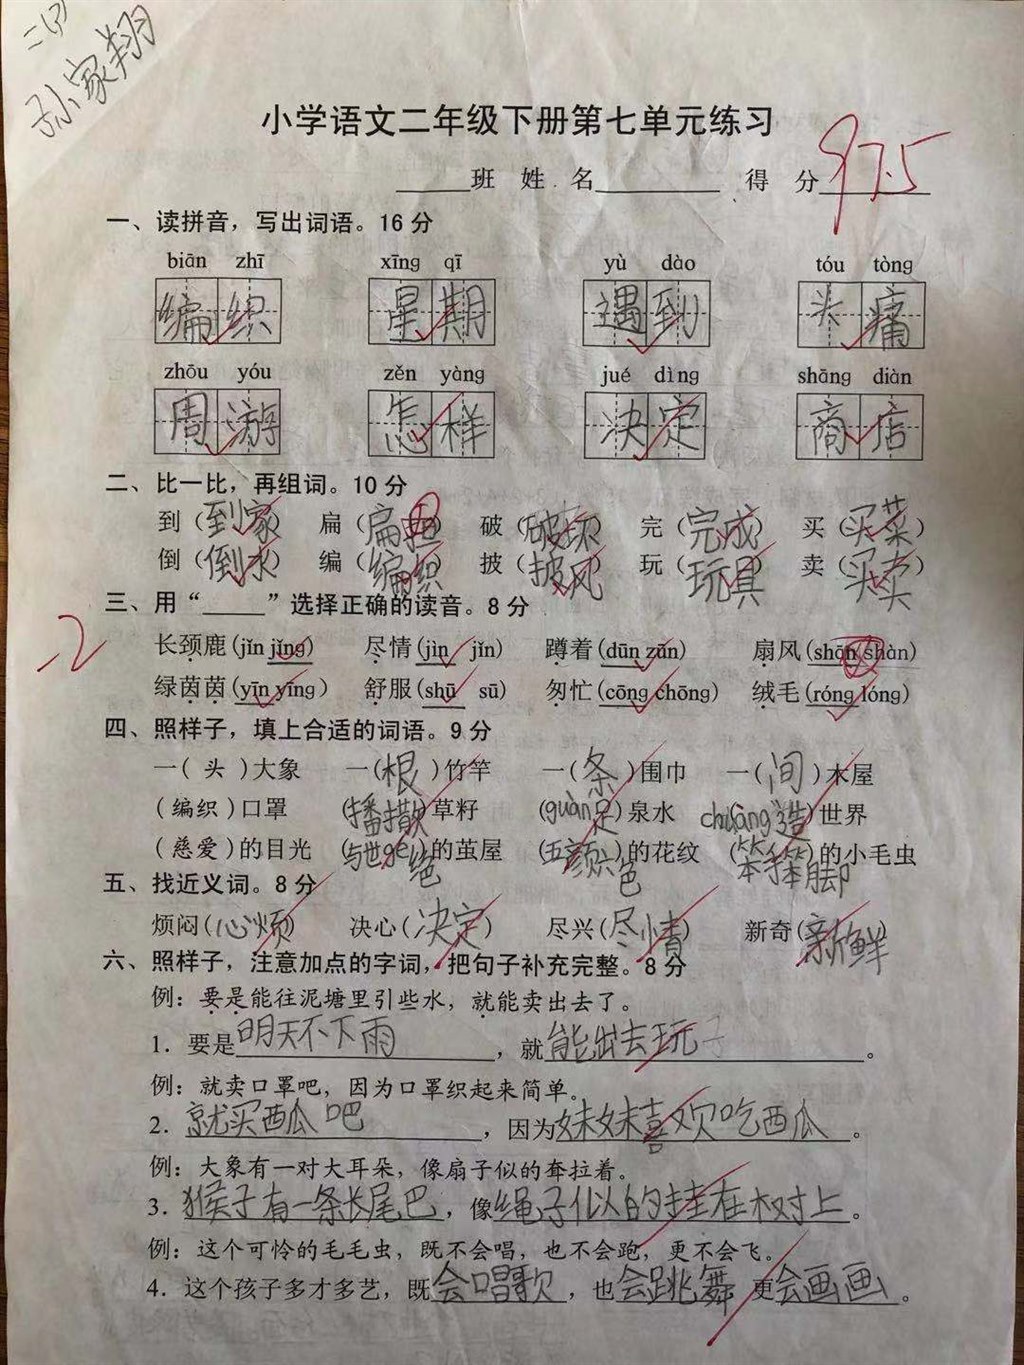 二(3)
孙家翔
小学语文二年级下册第七单元练习
____班 姓 名________ 得 分 97.5
一、读拼音，写出词语。16分
biān zhī xīng qī yù dào tóu tòng
编织 星期 遇到 头痛
zhōu yóu zěn yàng jué dìng shāng diàn
周游 怎样 决定 商店
二、比一比，再组词。10分
到（到家） 扁（扁担） 破（破坏） 完（完成） 买（买菜）
倒（倒水） 编（编织） 披（披风） 玩（玩具） 卖（买卖）
三、用“_____”选择正确的读音。8分
-2
长颈鹿(jǐn jǐng) 尽情(jìn jǐn) 蹲着(dūn zūn) 扇风(shān shàn)
绿茵茵(yīn yīng) 舒服(shū sū) 匆忙(cōng chōng) 绒毛(róng lóng)
四、照样子，填上合适的词语。9分
一( 头 )大象 一(根)竹竿 一(条)围巾 一(间)木屋
(编织)口罩 (播撒)草籽 (guàn足)泉水 chuàng造)世界
(慈爱)的目光 (与世gé绝)的茧屋 (五颜六色)的花纹 (笨手笨脚)的小毛虫
五、找近义词。8分
烦闷(心烦) 决心(决定) 尽兴(尽情) 新奇(新鲜)
六、照样子，注意加点的字词，把句子补充完整。8分
例：要是能往泥塘里引些水，就能卖出去了。
1. 要是明天不下雨，就能出去玩子。
例：就卖口罩吧，因为口罩织起来简单。
2. 就买西瓜吧，因为妹妹喜欢吃西瓜。
例：大象有一对大耳朵，像扇子似的耷拉着。
3. 猴子有一条长尾巴，像绳子似的挂在树上。
例：这个可怜的毛毛虫，既不会唱，也不会跑，更不会飞。
4. 这个孩子多才多艺，既会唱歌，也会跳舞 更会画画。